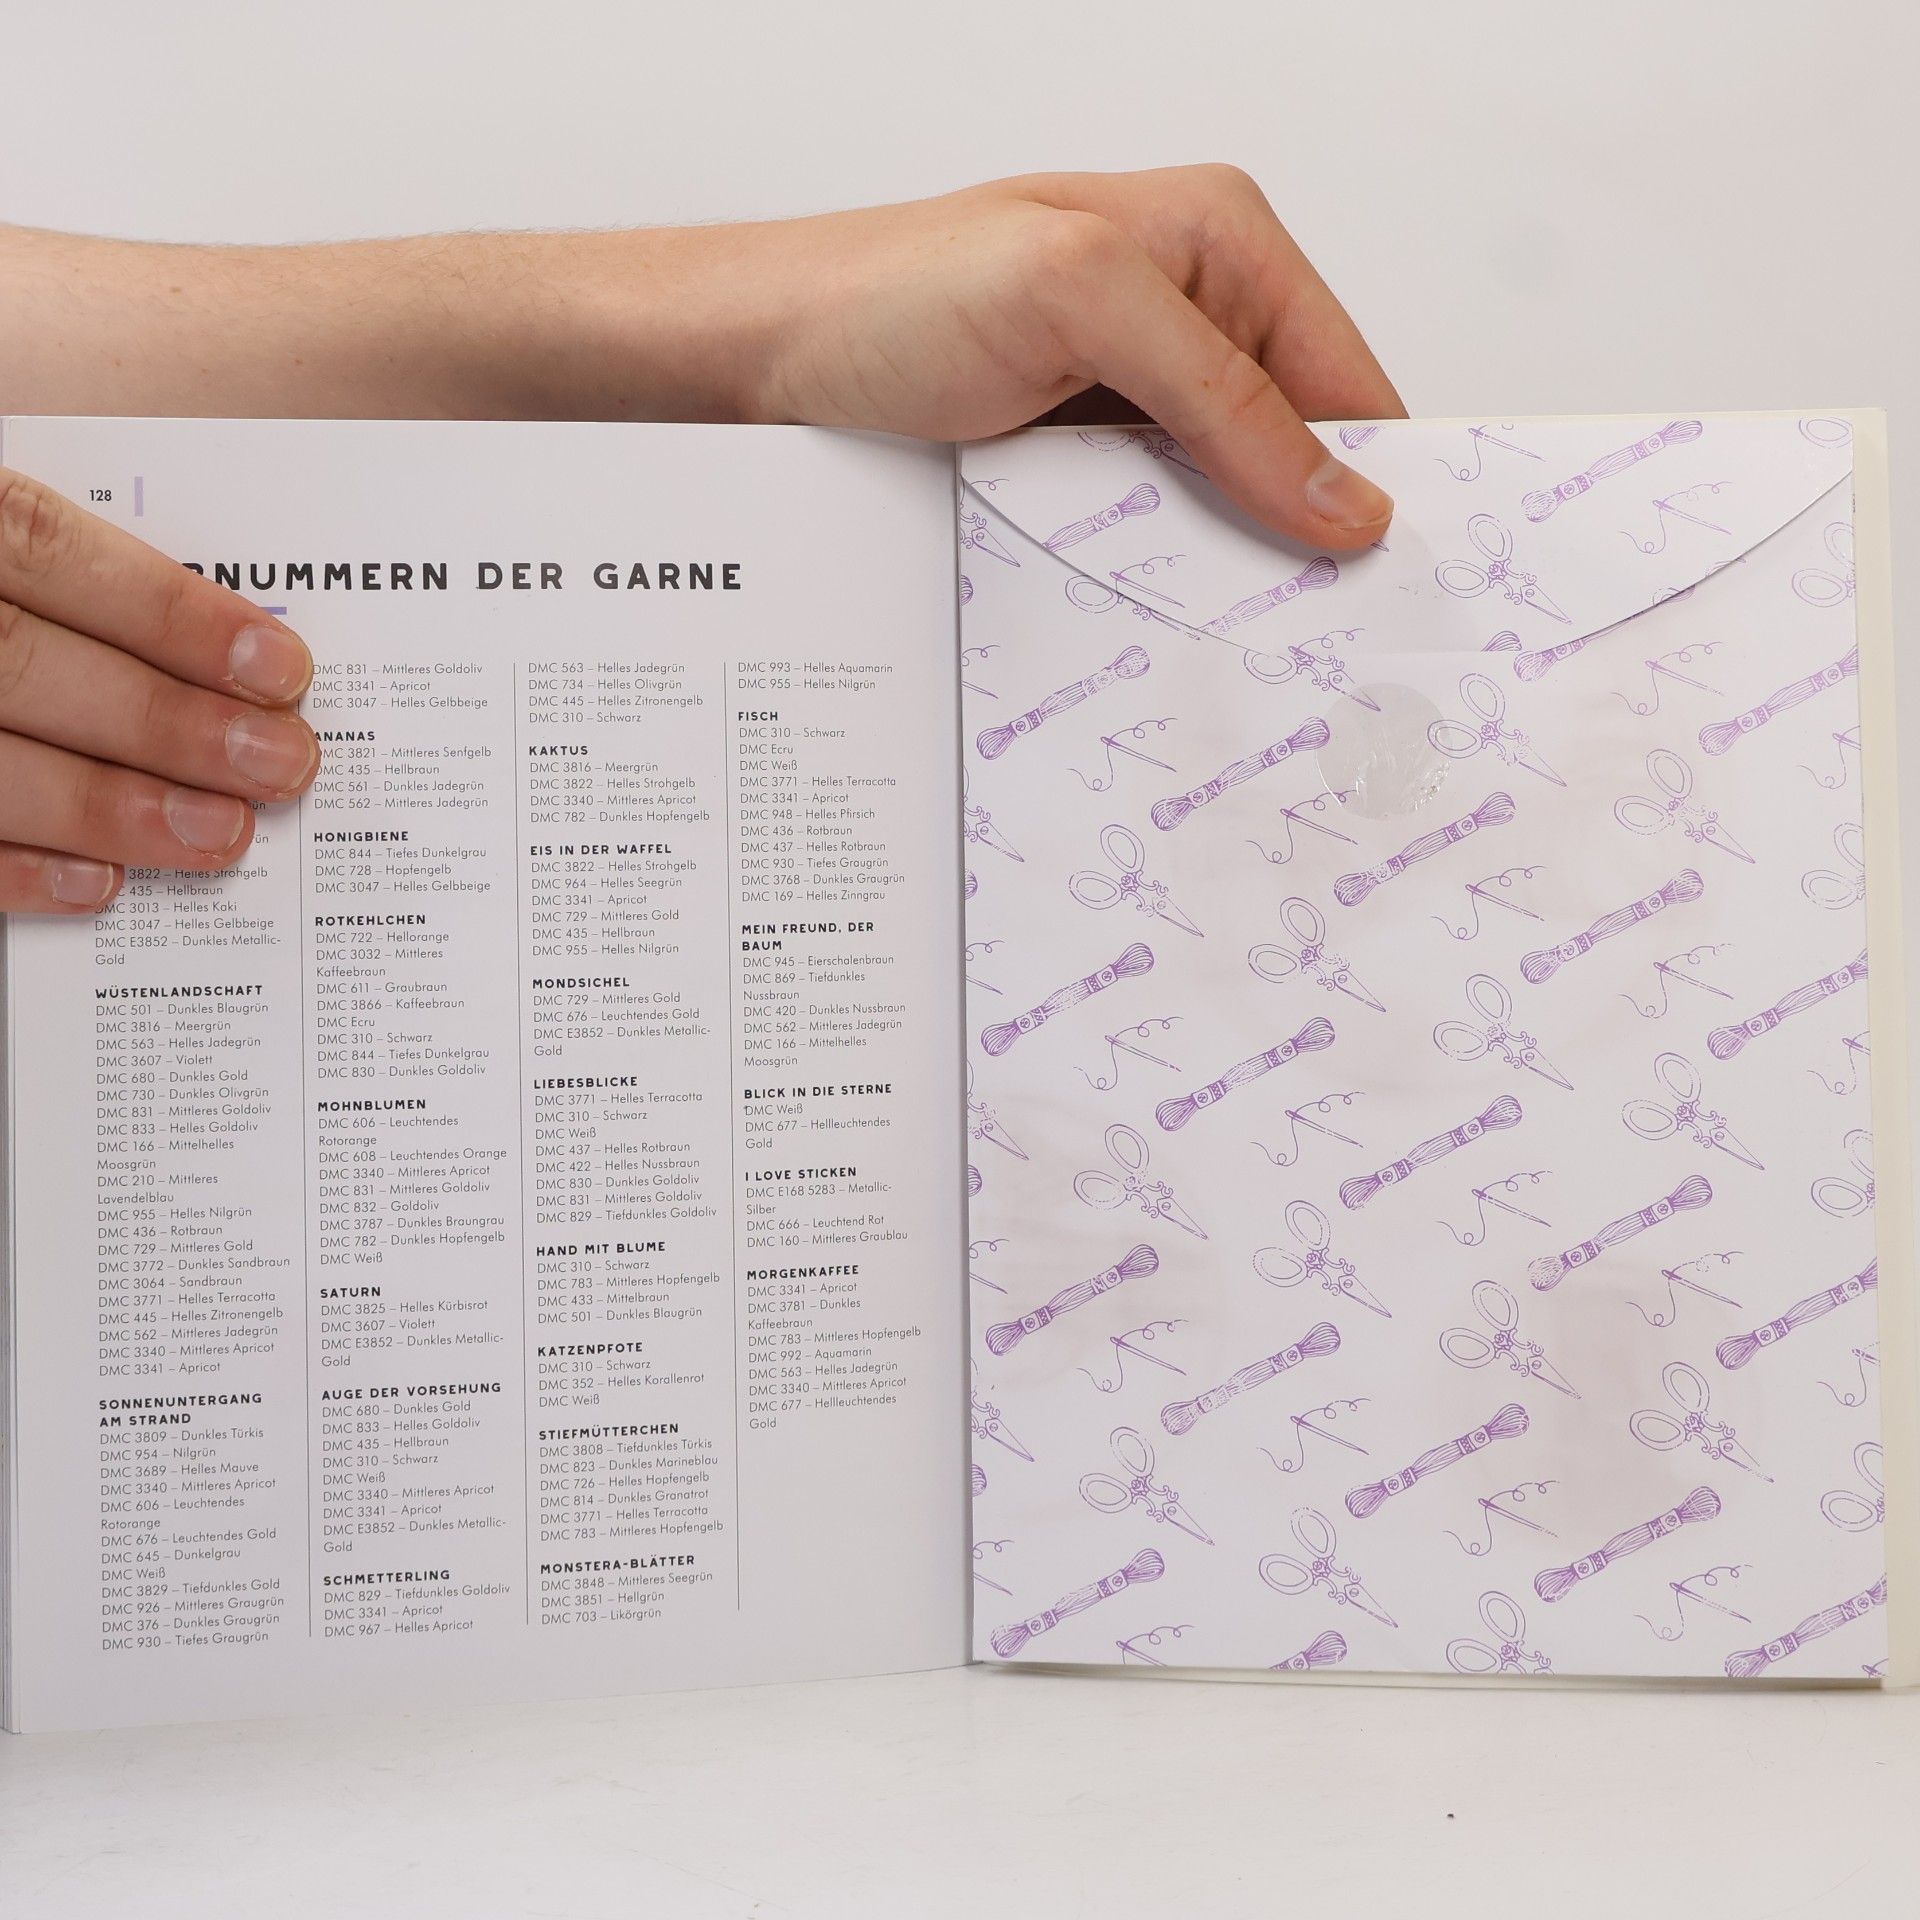 128
NUMMERN DER GARNE
3822 – Helles Strohgelb
435 – Hellbraun
DMC 3013 – Helles Kaki
DMC 3047 – Helles Gelbbeige
DMC E3852 – Dunkles Metallic-
Gold
WÜSTENLANDSCHAFT
DMC 501 – Dunkles Blaugrün
DMC 3816 – Meergrün
DMC 563 – Helles Jadegrün
DMC 3607 – Violett
DMC 680 – Dunkles Gold
DMC 730 – Dunkles Olivgrün
DMC 831 – Mittleres Goldoliv
DMC 833 – Helles Goldoliv
DMC 166 – Mittelhelles
Moosgrün
DMC 210 – Mittleres
Lavendelblau
DMC 955 – Helles Nilgrün
DMC 436 – Rotbraun
DMC 729 – Mittleres Gold
DMC 3772 – Dunkles Sandbraun
DMC 3064 – Sandbraun
DMC 3771 – Helles Terracotta
DMC 445 – Helles Zitronengelb
DMC 562 – Mittleres Jadegrün
DMC 3340 – Mittleres Apricot
DMC 3341 – Apricot
SONNENUNTERGANG
AM STRAND
DMC 3809 – Dunkles Türkis
DMC 954 – Nilgrün
DMC 3689 – Helles Mauve
DMC 3340 – Mittleres Apricot
DMC 606 – Leuchtendes
Rotorange
DMC 676 – Leuchtendes Gold
DMC 645 – Dunkelgrau
DMC Weiß
DMC 3829 – Tiefdunkles Gold
DMC 926 – Mittleres Graugrün
DMC 376 – Dunkles Graugrün
DMC 930 – Tiefes Graugrün
DMC 831 – Mittleres Goldoliv
DMC 3341 – Apricot
DMC 3047 – Helles Gelbbeige
ANANAS
DMC 3821 – Mittleres Senfgelb
DMC 435 – Hellbraun
DMC 561 – Dunkles Jadegrün
DMC 562 – Mittleres Jadegrün
HONIGBIENE
DMC 844 – Tiefes Dunkelgrau
DMC 728 – Hopfengelb
DMC 3047 – Helles Gelbbeige
ROTKEHLCHEN
DMC 722 – Hellorange
DMC 3032 – Mittleres
Kaffeebraun
DMC 611 – Graubraun
DMC 3866 – Kaffeebraun
DMC Ecru
DMC 310 – Schwarz
DMC 844 – Tiefes Dunkelgrau
DMC 830 – Dunkles Goldoliv
MOHNBLUMEN
DMC 606 – Leuchtendes
Rotorange
DMC 608 – Leuchtendes Orange
DMC 3340 – Mittleres Apricot
DMC 831 – Mittleres Goldoliv
DMC 832 – Goldoliv
DMC 3787 – Dunkles Braungrau
DMC 782 – Dunkles Hopfengelb
DMC Weiß
SATURN
DMC 3825 – Helles Kürbisrot
DMC 3607 – Violett
DMC E3852 – Dunkles Metallic-
Gold
AUGE DER VORSEHUNG
DMC 680 – Dunkles Gold
DMC 833 – Helles Goldoliv
DMC 435 – Hellbraun
DMC 310 – Schwarz
DMC Weiß
DMC 3340 – Mittleres Apricot
DMC 3341 – Apricot
DMC E3852 – Dunkles Metallic-
Gold
SCHMETTERLING
DMC 829 – Tiefdunkles Goldoliv
DMC 3341 – Apricot
DMC 967 – Helles Apricot
DMC 563 – Helles Jadegrün
DMC 734 – Helles Olivgrün
DMC 445 – Helles Zitronengelb
DMC 310 – Schwarz
KAKTUS
DMC 3816 – Meergrün
DMC 3822 – Helles Strohgelb
DMC 3340 – Mittleres Apricot
DMC 782 – Dunkles Hopfengelb
EIS IN DER WAFFEL
DMC 3822 – Helles Strohgelb
DMC 964 – Helles Seegrün
DMC 3341 – Apricot
DMC 729 – Mittleres Gold
DMC 435 – Hellbraun
DMC 955 – Helles Nilgrün
MONDSICHEL
DMC 729 – Mittleres Gold
DMC 676 – Leuchtendes Gold
DMC E3852 – Dunkles Metallic-
Gold
LIEBESBLICKE
DMC 3771 – Helles Terracotta
DMC 310 – Schwarz
DMC Weiß
DMC 437 – Helles Rotbraun
DMC 422 – Helles Nussbraun
DMC 830 – Dunkles Goldoliv
DMC 831 – Mittleres Goldoliv
DMC 829 – Tiefdunkles Goldoliv
HAND MIT BLUME
DMC 310 – Schwarz
DMC 783 – Mittleres Hopfengelb
DMC 433 – Mittelbraun
DMC 501 – Dunkles Blaugrün
KATZENPFOTE
DMC 310 – Schwarz
DMC 352 – Helles Korallenrot
DMC Weiß
STIEFMÜTTERCHEN
DMC 3808 – Tiefdunkles Türkis
DMC 823 – Dunkles Marineblau
DMC 726 – Helles Hopfengelb
DMC 814 – Dunkles Granatrot
DMC 3771 – Helles Terracotta
DMC 783 – Mittleres Hopfengelb
MONSTERA-BLÄTTER
DMC 3848 – Mittleres Seegrün
DMC 3851 – Hellgrün
DMC 703 – Likörgrün
DMC 993 – Helles Aquamarin
DMC 955 – Helles Nilgrün
FISCH
DMC 310 – Schwarz
DMC Ecru
DMC Weiß
DMC 3771 – Helles Terracotta
DMC 3341 – Apricot
DMC 948 – Helles Pfirsich
DMC 436 – Rotbraun
DMC 437 – Helles Rotbraun
DMC 930 – Tiefes Graugrün
DMC 3768 – Dunkles Graugrün
DMC 169 – Helles Zinngrau
MEIN FREUND, DER
BAUM
DMC 945 – Eierschalenbraun
DMC 869 – Tiefdunkles
Nussbraun
DMC 420 – Dunkles Nussbraun
DMC 562 – Mittleres Jadegrün
DMC 166 – Mittelhelles
Moosgrün
BLICK IN DIE STERNE
DMC Weiß
DMC 677 – Hellleuchtendes
Gold
I LOVE STICKEN
DMC E168 5283 – Metallic-
Silber
DMC 666 – Leuchtend Rot
DMC 160 – Mittleres Graublau
MORGENKAFFEE
DMC 3341 – Apricot
DMC 3781 – Dunkles
Kaffeebraun
DMC 783 – Mittleres Hopfengelb
DMC 992 – Aquamarin
DMC 563 – Helles Jadegrün
DMC 3340 – Mittleres Apricot
DMC 677 – Hellleuchtendes
Gold